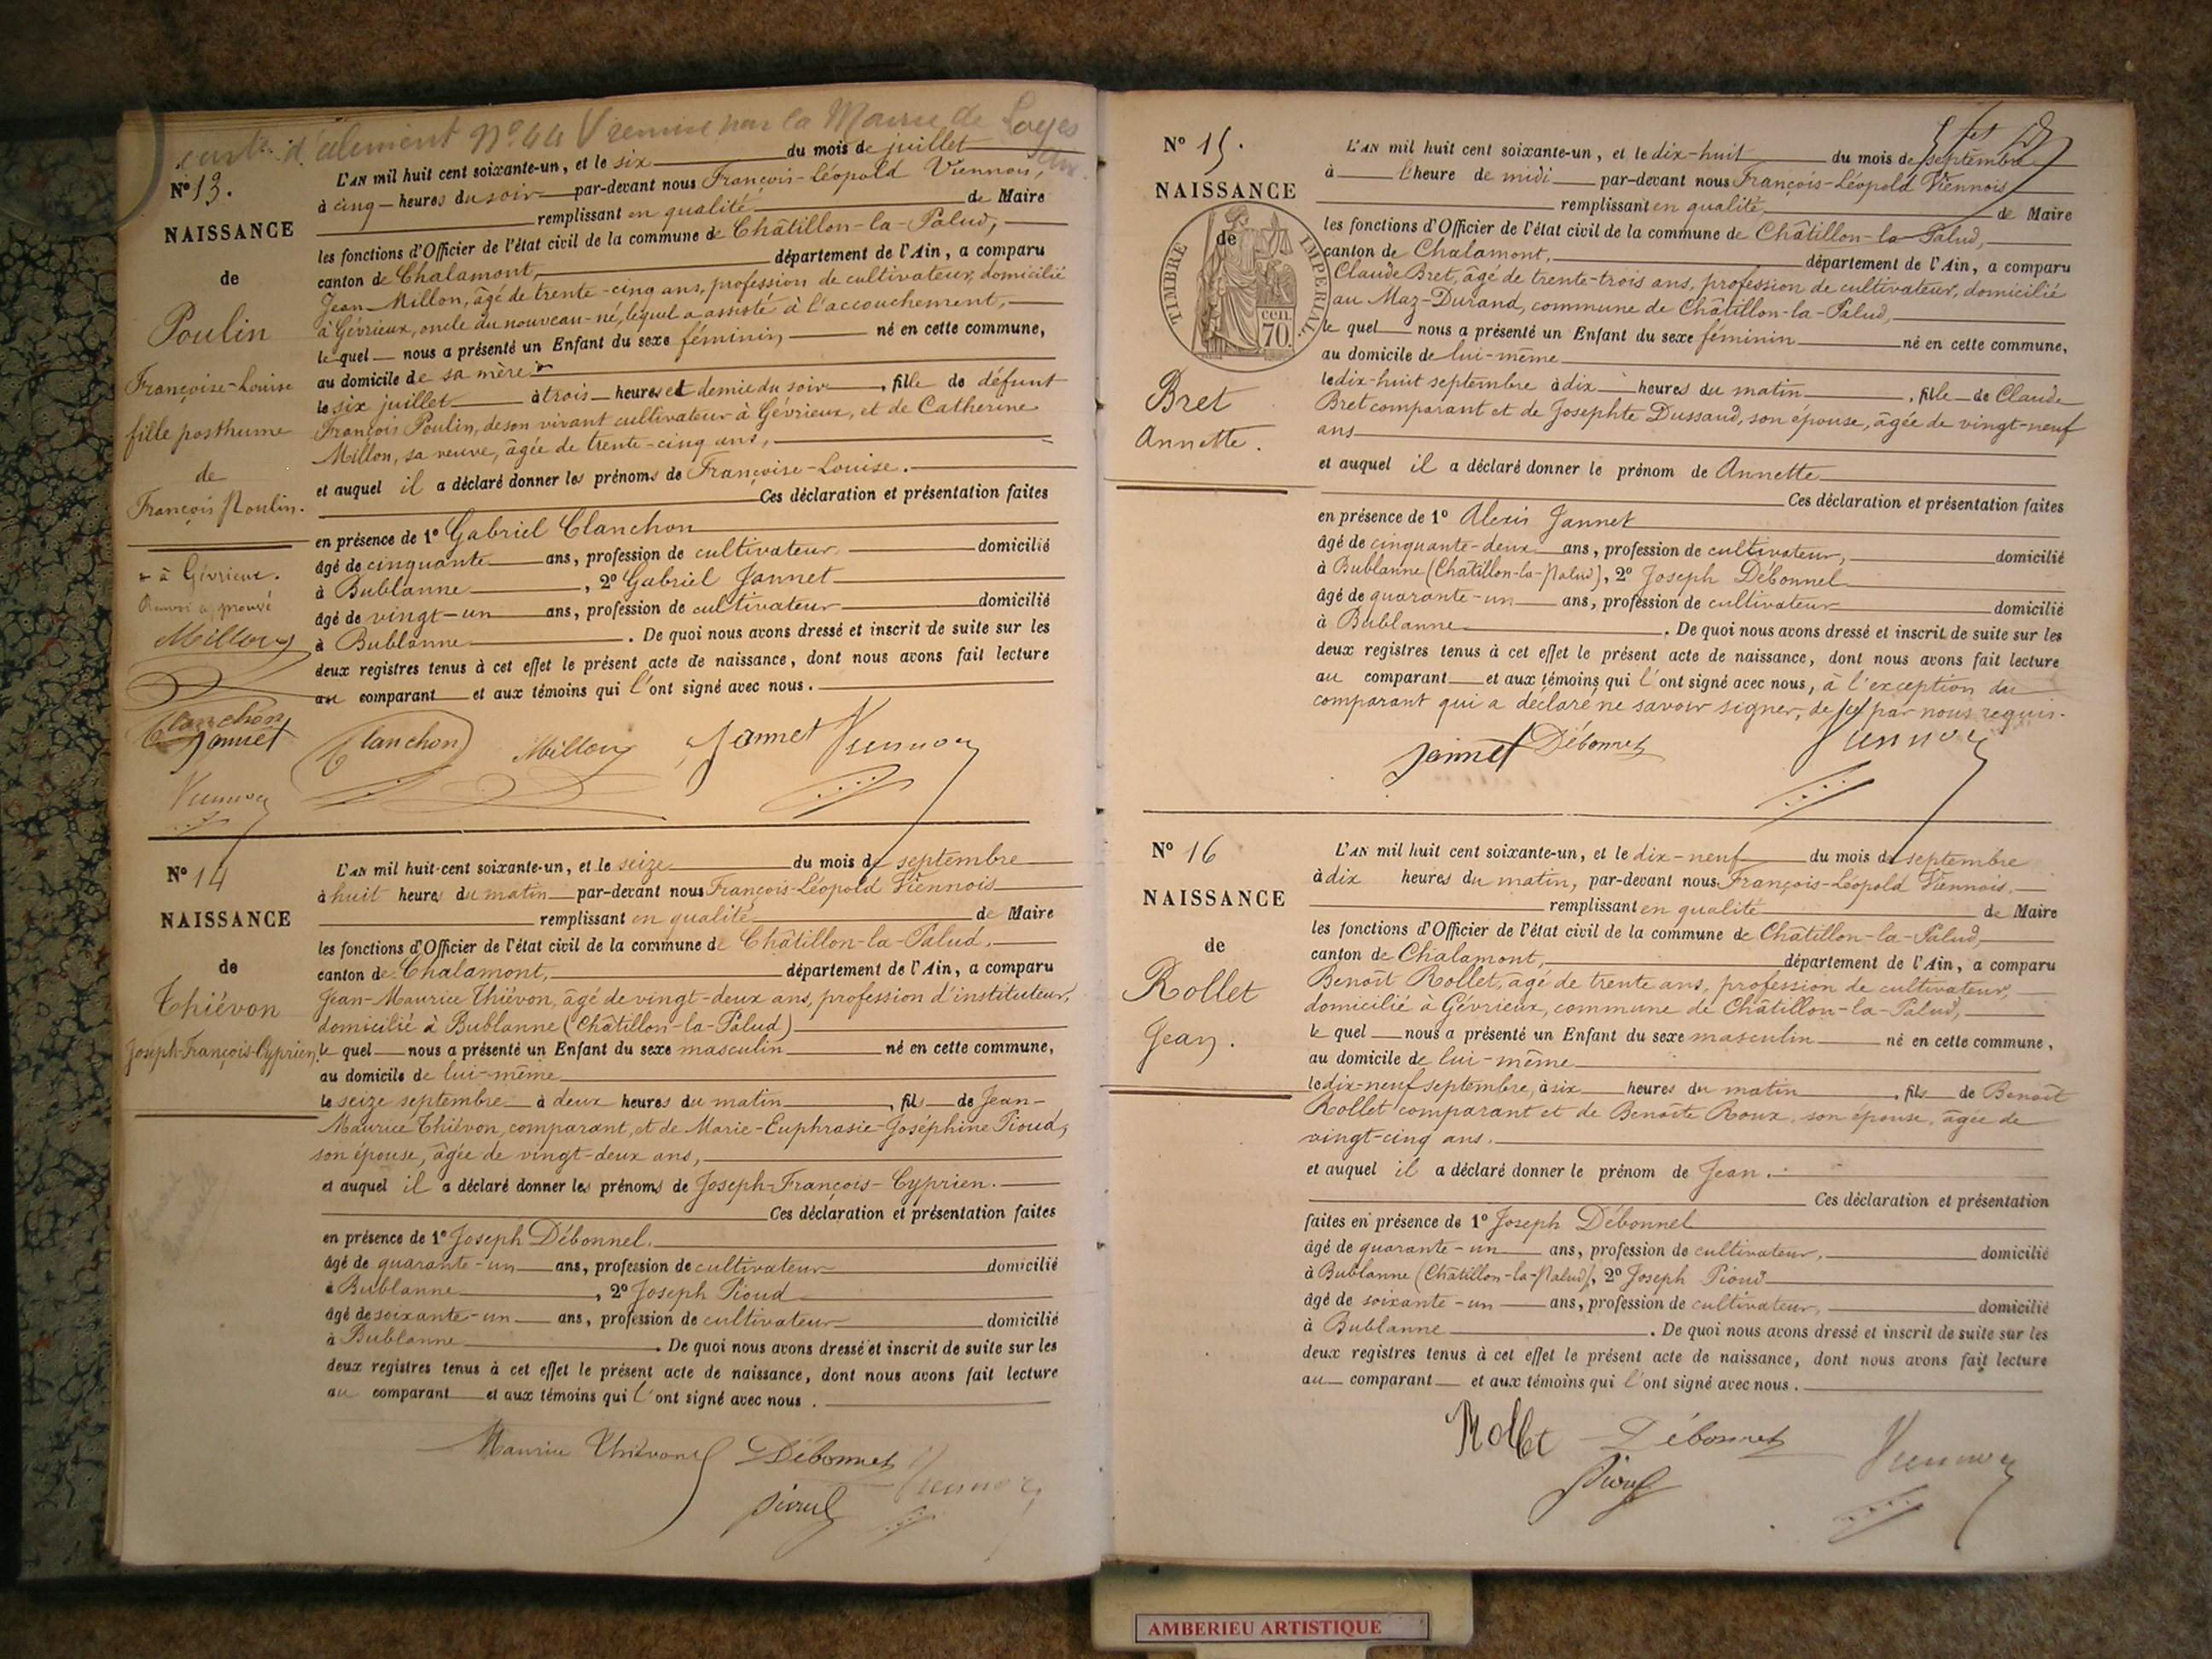 carte d'aliment N° 44 V remise par la Mairie de Loyes
Ain.
N° 13.
NAISSANCE
de
Poulin
Françoise-Louise
fille posthume
de
François Poulin.
à Gévrieux.
Renvoi approuvé
Millon
Clanchon
Jannet
Viennois
L'AN mil huit cent soixante-un, et le six du mois de juillet
à cinq heures du soir par-devant nous François-Léopold Viennois,
remplissant en qualité de Maire
les fonctions d'Officier de l'état civil de la commune de Châtillon-la-Palud,
canton de Chalamont, département de l'Ain, a comparu
Jean Millon, âgé de trente-cinq ans, profession de cultivateur, domicilié
à Gévrieux, oncle du nouveau-né, lequel a assisté à l'accouchement,
le quel nous a présenté un Enfant du sexe féminin, né en cette commune,
au domicile de sa mère
le six juillet à trois heures et demie du soir, fille de défunt
François Poulin, de son vivant cultivateur à Gévrieux, et de Catherine
Millon, sa veuve, âgée de trente-cinq ans,
et auquel il a déclaré donner les prénoms de Françoise-Louise.
Ces déclaration et présentation faites
en présence de 1° Gabriel Clanchon
âgé de cinquante ans, profession de cultivateur domicilié
à Bublanne, 2° Gabriel Jannet
âgé de vingt-un ans, profession de cultivateur domicilié
à Bublanne. De quoi nous avons dressé et inscrit de suite sur les
deux registres tenus à cet effet le présent acte de naissance, dont nous avons fait lecture
au comparant et aux témoins qui l'ont signé avec nous.
Clanchon Millon Jannet Viennois
N° 14
NAISSANCE
de
Thiévon
Joseph-François-Cyprien.
L'AN mil huit-cent soixante-un, et le seize du mois de septembre
à huit heures du matin par-devant nous François-Léopold Viennois
remplissant en qualité de Maire
les fonctions d'Officier de l'état civil de la commune de Châtillon-la-Palud,
canton de Chalamont, département de l'Ain, a comparu
Jean-Maurice Thiévon, âgé de vingt-deux ans, profession d'instituteur,
domicilié à Bublanne (Châtillon-la-Palud)
le quel nous a présenté un Enfant du sexe masculin né en cette commune,
au domicile de lui-même
le seize septembre à deux heures du matin, fils de Jean-
Maurice Thiévon, comparant, et de Marie-Euphrasie-Joséphine Pioud,
son épouse, âgée de vingt-deux ans,
et auquel il a déclaré donner les prénoms de Joseph-François-Cyprien.
Ces déclaration et présentation faites
en présence de 1° Joseph Débonnel.
âgé de quarante-un ans, profession de cultivateur domicilié
à Bublanne, 2° Joseph Pioud
âgé de soixante-un ans, profession de cultivateur domicilié
à Bublanne. De quoi nous avons dressé et inscrit de suite sur les
deux registres tenus à cet effet le présent acte de naissance, dont nous avons fait lecture
au comparant et aux témoins qui l'ont signé avec nous.
Maurice Thiévon Débonnel Viennois
Pioud
N° 15.
NAISSANCE
de
TIMBRE IMPERIAL
70. cen
Bret
Annette.
L'AN mil huit cent soixante-un, et le dix-huit du mois de septembre
à l'heure de midi par-devant nous François-Léopold Viennois
remplissant en qualité de Maire
les fonctions d'Officier de l'état civil de la commune de Châtillon-la-Palud,
canton de Chalamont, département de l'Ain, a comparu
Claude Bret, âgé de trente-trois ans, profession de cultivateur, domicilié
au Maz-Durand, commune de Châtillon-la-Palud,
le quel nous a présenté un Enfant du sexe féminin né en cette commune,
au domicile de lui-même
le dix-huit septembre à dix heures du matin, fille de Claude
Bret comparant et de Josephte Dussaud, son épouse, âgée de vingt-neuf
ans
et auquel il a déclaré donner le prénom de Annette
Ces déclaration et présentation faites
en présence de 1° Alexis Jannet
âgé de cinquante-deux ans, profession de cultivateur, domicilié
à Bublanne (Châtillon-la-Palud), 2° Joseph Débonnel
âgé de quarante-un ans, profession de cultivateur domicilié
à Bublanne. De quoi nous avons dressé et inscrit de suite sur les
deux registres tenus à cet effet le présent acte de naissance, dont nous avons fait lecture
au comparant et aux témoins qui l'ont signé avec nous, à l'exception du
comparant qui a déclaré ne savoir signer, de ce par nous requis.
Jannet Débonnel Viennois
N° 16
NAISSANCE
de
Rollet
Jean.
L'AN mil huit cent soixante-un, et le dix-neuf du mois de septembre
à dix heures du matin, par-devant nous François-Léopold Viennois,
remplissant en qualité de Maire
les fonctions d'Officier de l'état civil de la commune de Châtillon-la-Palud,
canton de Chalamont, département de l'Ain, a comparu
Benoît Rollet, âgé de trente ans, profession de cultivateur,
domicilié à Gévrieux, commune de Châtillon-la-Palud,
le quel nous a présenté un Enfant du sexe masculin né en cette commune,
au domicile de lui-même
le dix-neuf septembre, à six heures du matin, fils de Benoît
Rollet comparant et de Benoîte Roux, son épouse, âgée de
vingt-cinq ans.
et auquel il a déclaré donner le prénom de Jean.
Ces déclaration et présentation
faites en présence de 1° Joseph Débonnel
âgé de quarante-un ans, profession de cultivateur, domicilié
à Bublanne (Châtillon-la-Palud), 2° Joseph Pioud
âgé de soixante-un ans, profession de cultivateur, domicilié
à Bublanne. De quoi nous avons dressé et inscrit de suite sur les
deux registres tenus à cet effet le présent acte de naissance, dont nous avons fait lecture
au comparant et aux témoins qui l'ont signé avec nous.
Rollet Débonnel Viennois
Pioud
AMBERIEU ARTISTIQUE